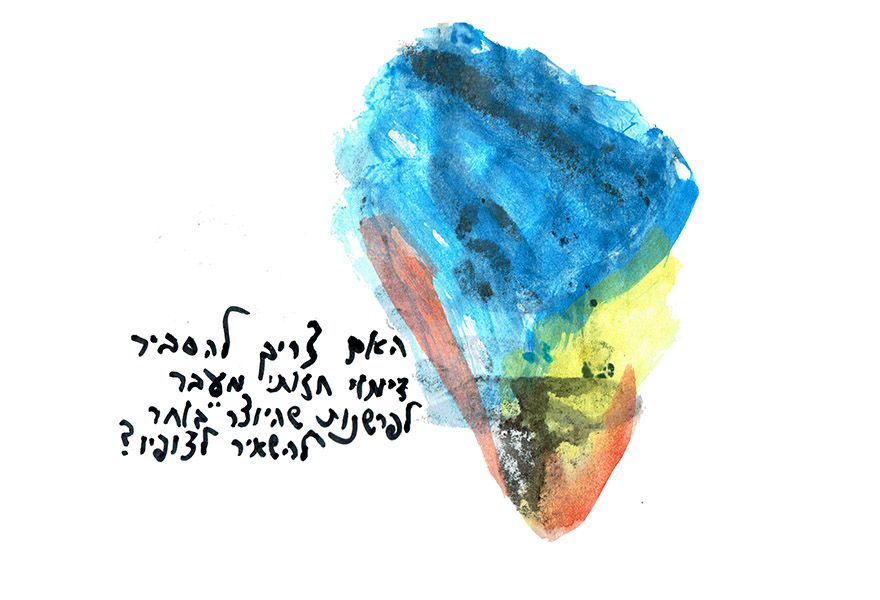 האם צריך להסביר
דימוי חזותי מעבר
לפרשנות שהיוצר "בוחר
להשאיר לצופיו?